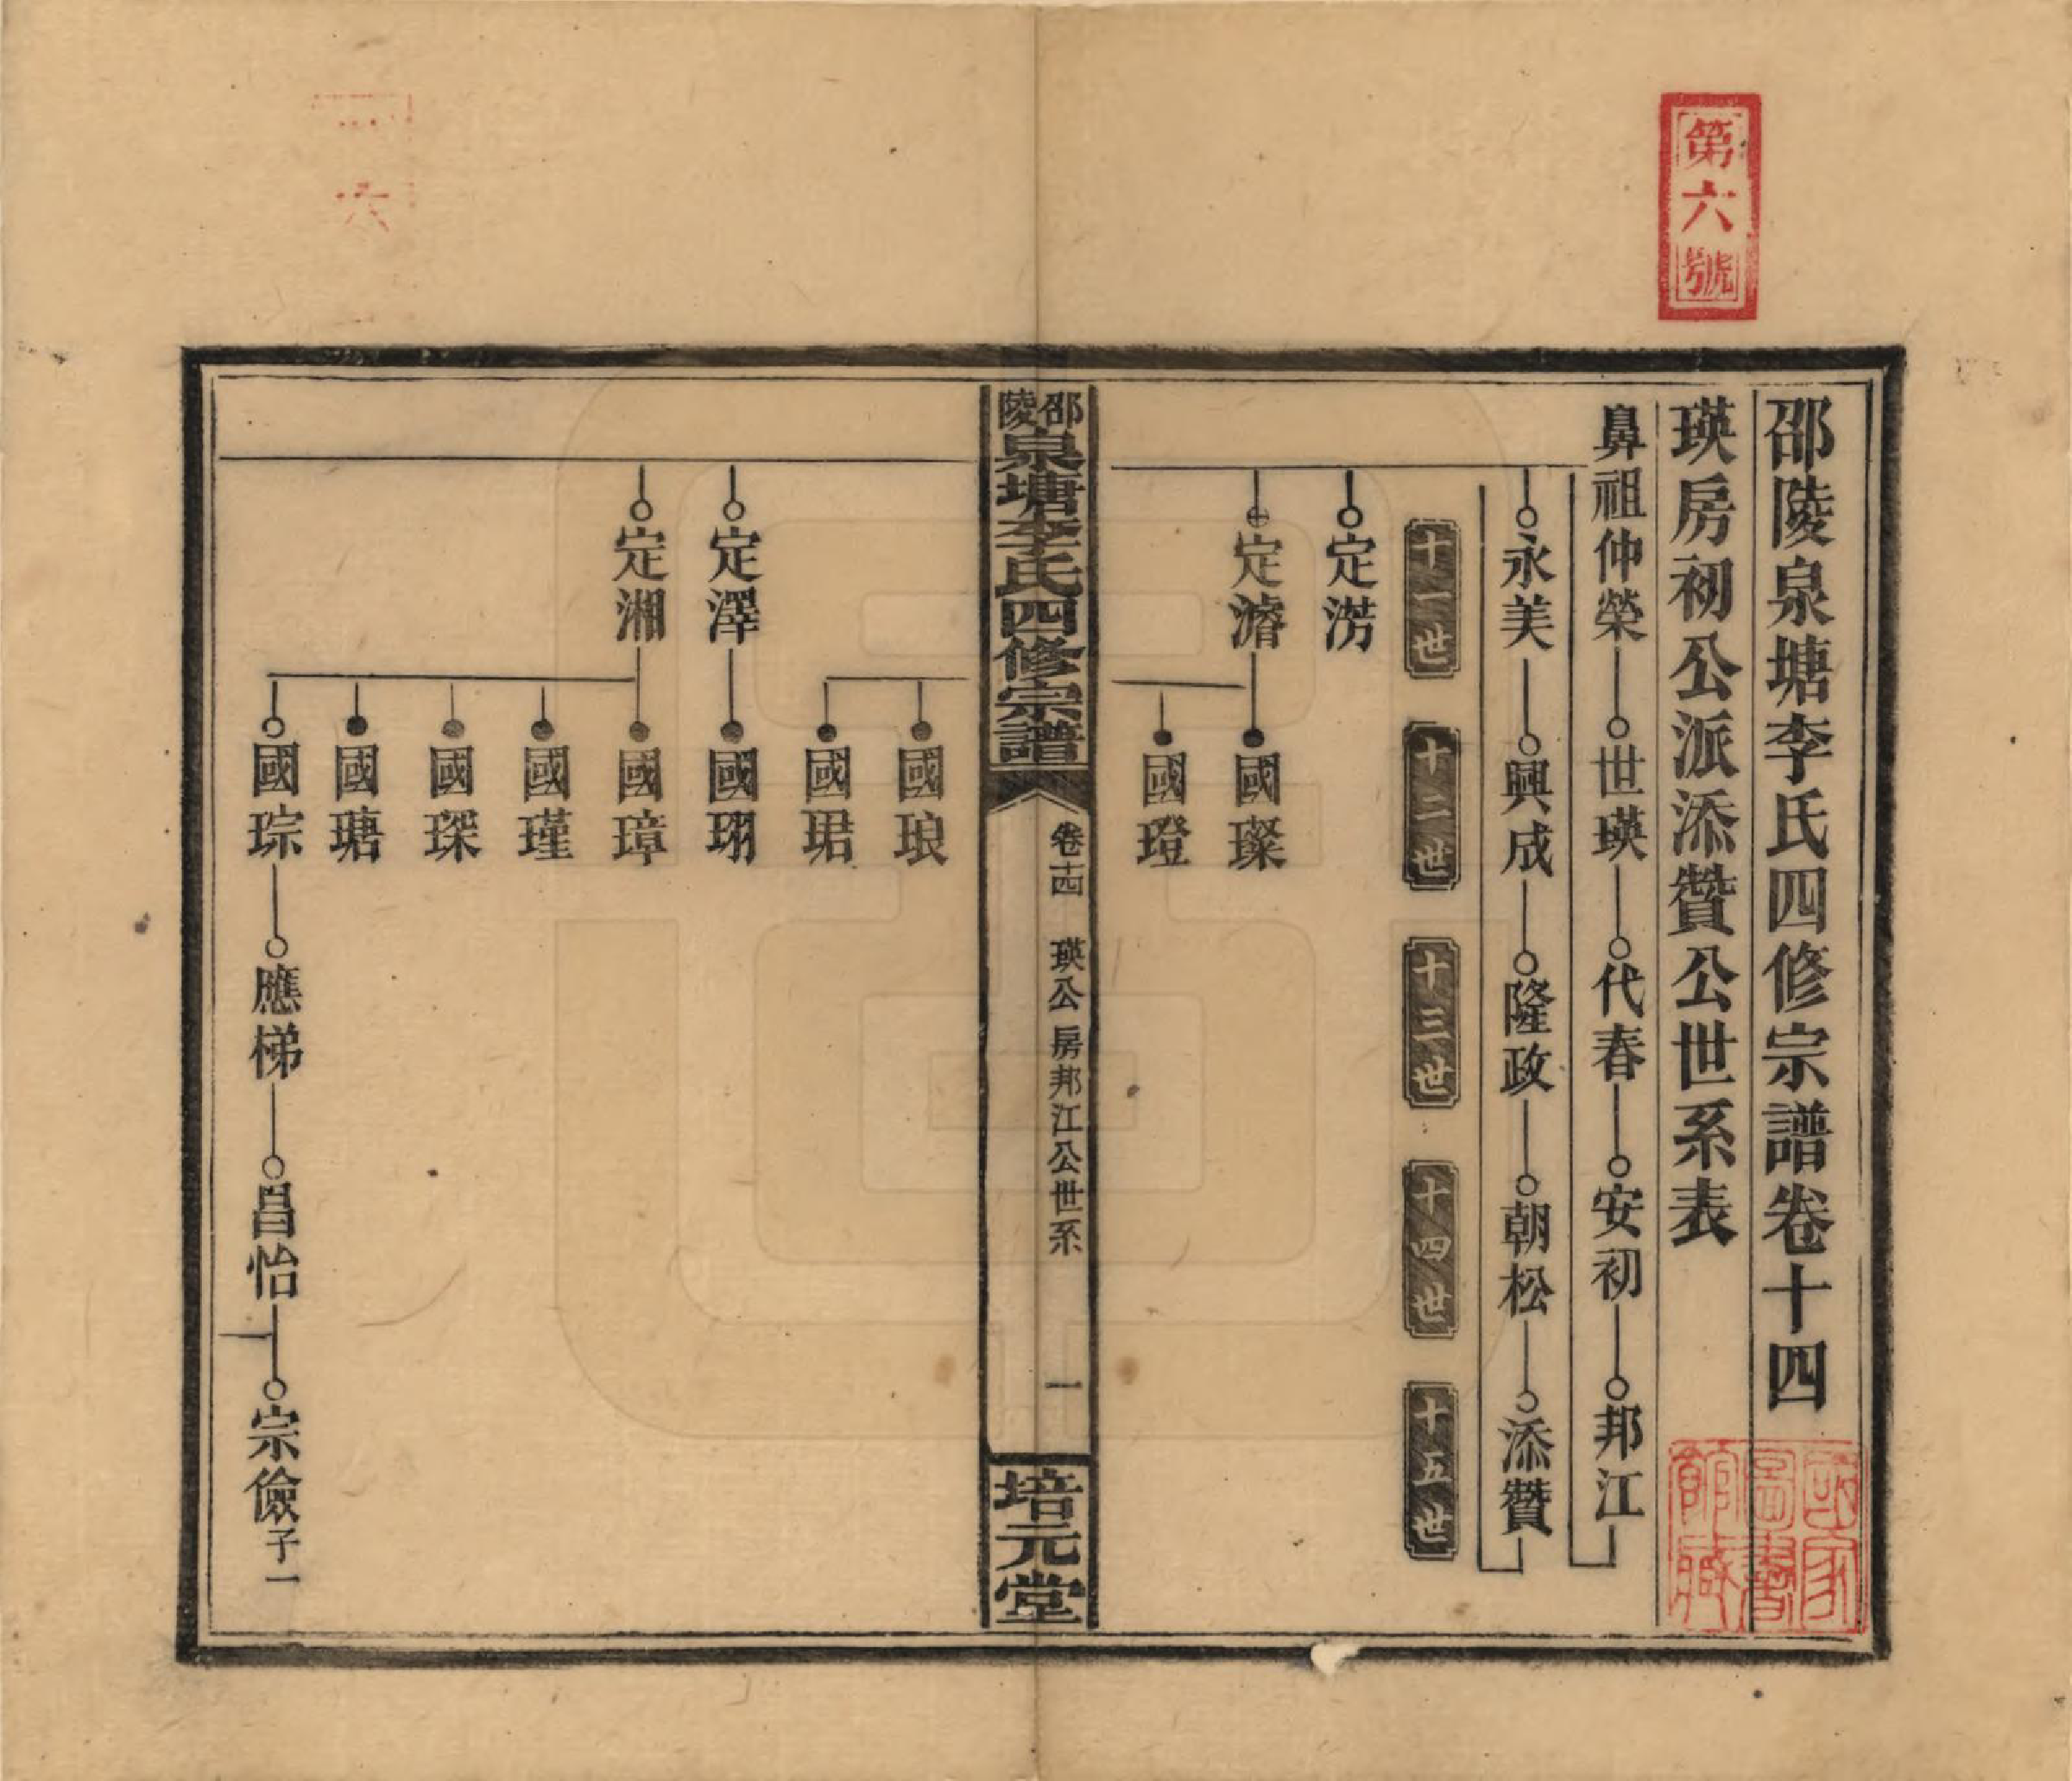 第六號
邵陵泉塘李氏四修宗譜卷十四
瑛房初公派添贊公世系表
鼻祖仲榮 世瑛 代春 安初 邦江
永美 興成 隆政 朝松 添贊
十一世 十二世 十三世 十四世 十五世
定淓
定濬 國璨
國璒
邵陵泉塘李氏四修宗譜 卷十四 瑛公房邦江公世系 一 培元堂
國琅
國珺
定澤 國珝
定湘 國璋
國瑾
國琛
國瑭
國琮 應梯 昌怡 宗儉 子一
國家圖書館藏